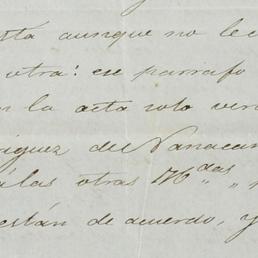 sta aunque no le c
otra: ese parrafo
n la acta solo ver
iguez de Vanacar
á las otras M.das
están de acuerdo, y